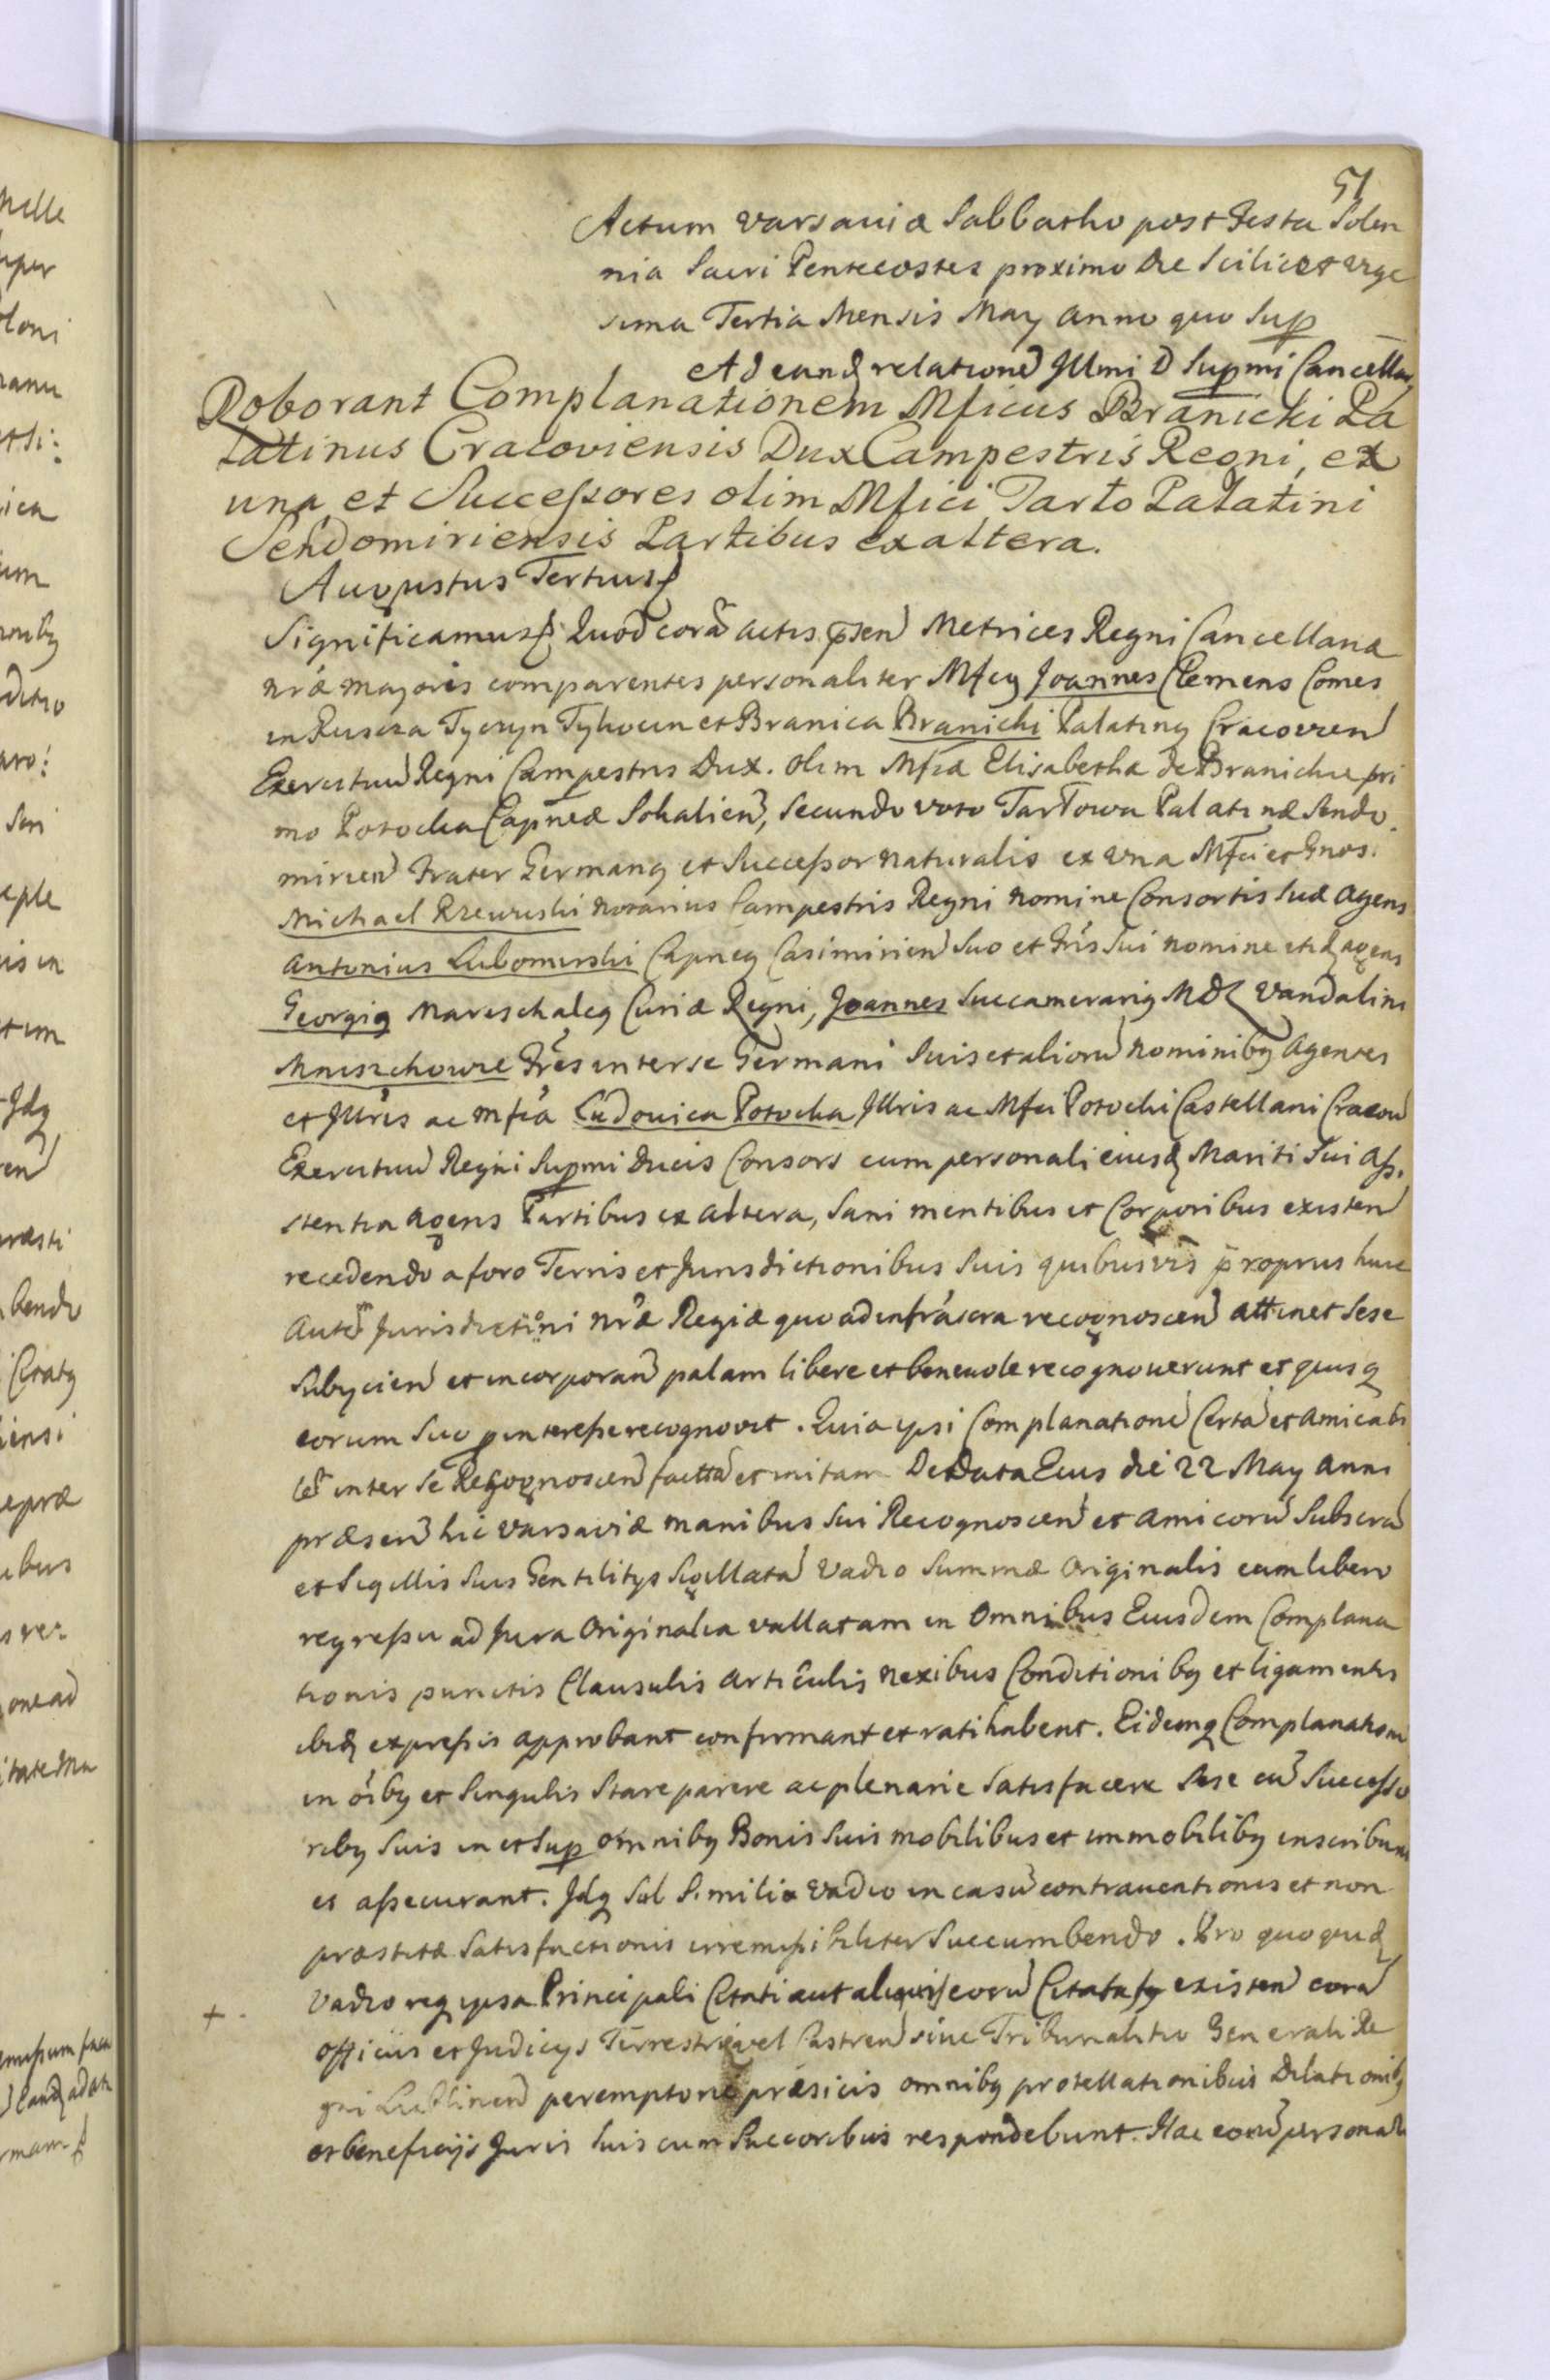 51
Actum Varsaviæ Sabbatho post Festa Solen
nia Sacri Pentecostes proximo Die Scilicet vige
sima Tertia Mensis May anno quo Sup
Ad eand relatione Illmi D Supmi Cancellar
Roborant Complanationem Mficus Branicki Pa
latinus Cracoviensis Dux Campestris Regni, ex
una et Successores olim Mfici Tarło Palatini
Sendomiriensis Partibus ex altera.
Augustus Tertius
Significamus Quod cora actis psen Metrices Regni Cancellariæ
nræ majoris comparentes personaliter Mfcy Joannes Clemens Comes
in Ruscza Tyczyn Tykocin et Branica Branicki Palatinq Cracovien
Exercituu Regni Campestris Dux. olim Mfcæ Elisabethæ de Branickie pri
mo Potocka Capneæ Sokalien, Secundo voto Tarłowa Palatinæ Sendo
mirien Frater Germanq et Successor naturalis ex una Mfci et Gnos.
Michael Rzewuski Notarius Campestris Regni nomine Consortis Suæ agens
Antonius Lubomirski Capneq Casimirien Suo et Fris Sui nomine agens
Georgiq Mareschalcq Curiæ Regni, Joannes Succamerariq MDL Vandalini
Mniszchowie Fres inter se Germani Suis et aliorū nominibq Agentes
et Illris ac mfca Ludovica Potocka Illris ac Mfci Potocki Castellani Cracov
Exercituu Regni Supmi Ducis Consors cum personali eiusd Mariti Sui assi
stentia agens Partibus ex altera, Sani mentibus et Corporibus existen
recedendo a foro Terris et Jurisdictionibus Suis quibusvis proprus hucc
Aute Jurisdictioni nræ Regiæ quo ad infrascra recognoscen attinet Sese
Subycien et incorporan palam libere et benevole recognoverunt et quisq
eorum Suo pinteresse recognovit. Quia ipsi Complanatione Certa et amicabi
le inter Se Recognoscen factta et initam De Data Eius die 22 May anni
præsen hic Varsaviæ manibus Sui Recognoscen et amicorū Subscra
et Sigillis Suis Gentilitys Sigillata Vadio Summæ Originalis cum libero
regressu ad Jura Originalia vallatam in Omnibus Eiusdem Complana
tionis punctis Clausulis Articulis Nexibus Conditionibq et ligamentis
ibid expressis approbant confirmant et ratihabent. Eidemq Complanationi
in oibq et Singulis Stare parere ac plenarie Satisfacere Sese cu Successo
ribq Suis in et Sup omnibq Bonis Suis mobilibus et immobilibq inscribunt
et assecurant. Idq Sub Simili Vadio in casu contraventionis et non
præstitæ Satisfactionis irremissibiliter Succumbendo. Pro quo quid
+ Vadio req ipsa Principali Citati aut aliquis eorū existen cora
Officiis et Judicys Terrestri vel Castren sive Tribunalitio Generali Re
gni Lublinen peremptorie præsicis omnibq Dilationibq
et beneficijs Juris Suis cum Succoribus respondebunt. Hac eorū personali